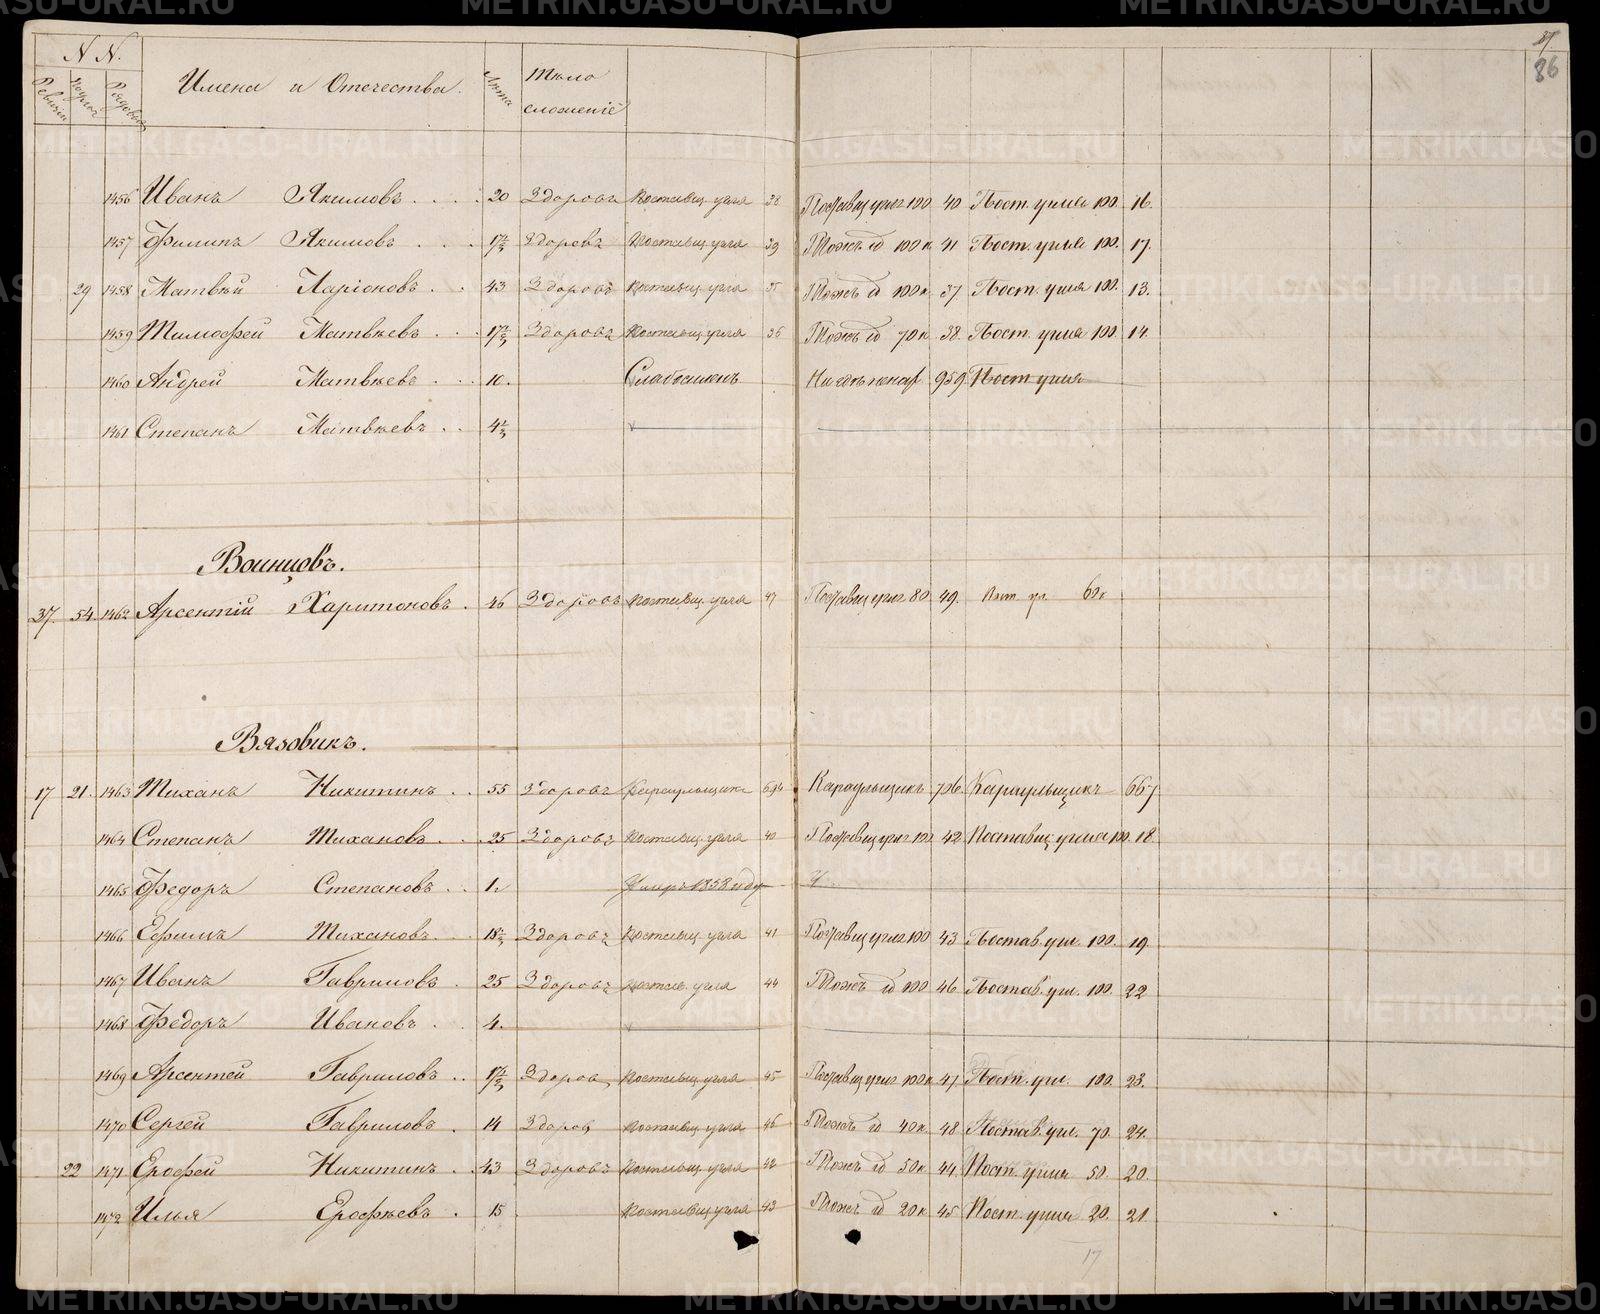 37
86
N N.
Ревизіи
Рядовые
Имена и Отечества.
Лѣта
Тѣло сложеніе
1456 Иванъ Якимовъ 20 Здоровъ Поставщ. угля 38 Поставщ. угля 100 40 Пост. угля 100. 16.
1457 Филипъ Якимовъ 17½ Здоровъ Поставщ. угля 39 Тожъ 100 к 41 Пост. угля 100. 17.
29 1458 Матвѣй Ларіоновъ 43 Здоровъ Поставщ. угля 35 Тожъ 100 к. 37 Пост. угля 100. 13.
1459 Тимофей Матвѣевъ 17½ Здоровъ Поставщ. угля 36 Тожъ 70 к. 38. Пост. угля 100. 14.
1460 Андрей Матвѣевъ 10. 959. Пост. угля
1461 Степанъ Матвѣевъ 4½
Воинцовъ.
37. 54. 1462 Арсентій Харитоновъ. 46 Здоровъ Поставщ. угля 47 Поставщ. угля 80 49. Пост. уг. 60 к
Вязовикъ.
17 21. 1463 Миханъ Никитинъ 55 Здоровъ Караульщикъ 694 Караульщикъ 706. Караульщикъ 667
1464 Степанъ Михановъ 25 Здоровъ Поставщ. угля 40 Поставщ. угля 100 42 Поставщ. угля 100. 18.
1465 Федоръ Степановъ 1. Умеръ 1858 году
1466 Ефимъ Михановъ 18½ Здоровъ Поставщ. угля 41 Поставщ. угля 100 43 Постав. угл. 100. 19.
1467 Иванъ Гавриловъ 25 Здоровъ Постав. угля 44 Тожъ 100 46 Постав. угл. 100. 22
1468 Федоръ Ивановъ 4.
1469 Арсентей Гавриловъ 17½ Здоров Поставщ. угля 45 Поставщ. угля 100 к. 47 Пост. угл. 100. 23.
1470 Сергей Гавриловъ 14 Здоров Поставщ. угля 46 Тожъ 40 к. 48 Постав. угл. 70. 24.
22 1471 Ерофей Никитинъ 43 Здоровъ Поставщ. угля 42 Тожъ 50 к 44. Пост. угля 50. 20.
1472 Илья Ерофѣевъ 15 Поставщ. угля 43 Тожъ 20 к 45 Пост. угля 20. 21
17
METRIKI.GASO-URAL.RU